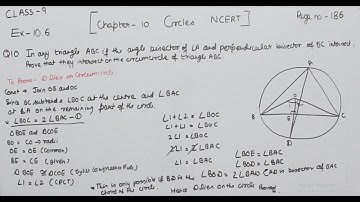 CLASS-9
[Chapter-10 Circles NCERT]
Page no-186
Ex-10.6
Q10 In any triangle ABC, if the angle bisector of ∠A and perpendicular bisector of BC intersect,
Prove that they intersect on the circumcircle of triangle ABC.
To Prove- D lies on Circumcircle.
Const → Join OB and OC
Since BC subtends ∠BOC at the centre and ∠BAC
at A on the remaining part of the circle
∠BOC = 2∠BAC -①
∆ BOE and ∆COE
BO = CO (→ radii)
OE = OE (Common)
BE = CE (given)
∆ BOE ≅ ∆COE (By
∠1 = ∠2 (CPCT)
∠1+∠2 = ∠BOC
∠1+∠1 = ∠BOC
2∠1 = ∠BOC
2∠1 = 2∠BAC
∠1 = ∠BAC
∠BOE = ∠BAC
∠BOD = ∠BAC
∠BOD = 2∠BAD (AD is bisector of BAC
• This is only possible if BD is the
Chord of the circle.
Hence D lies on the circle Proved
A
O
1
2
B
E
C
D